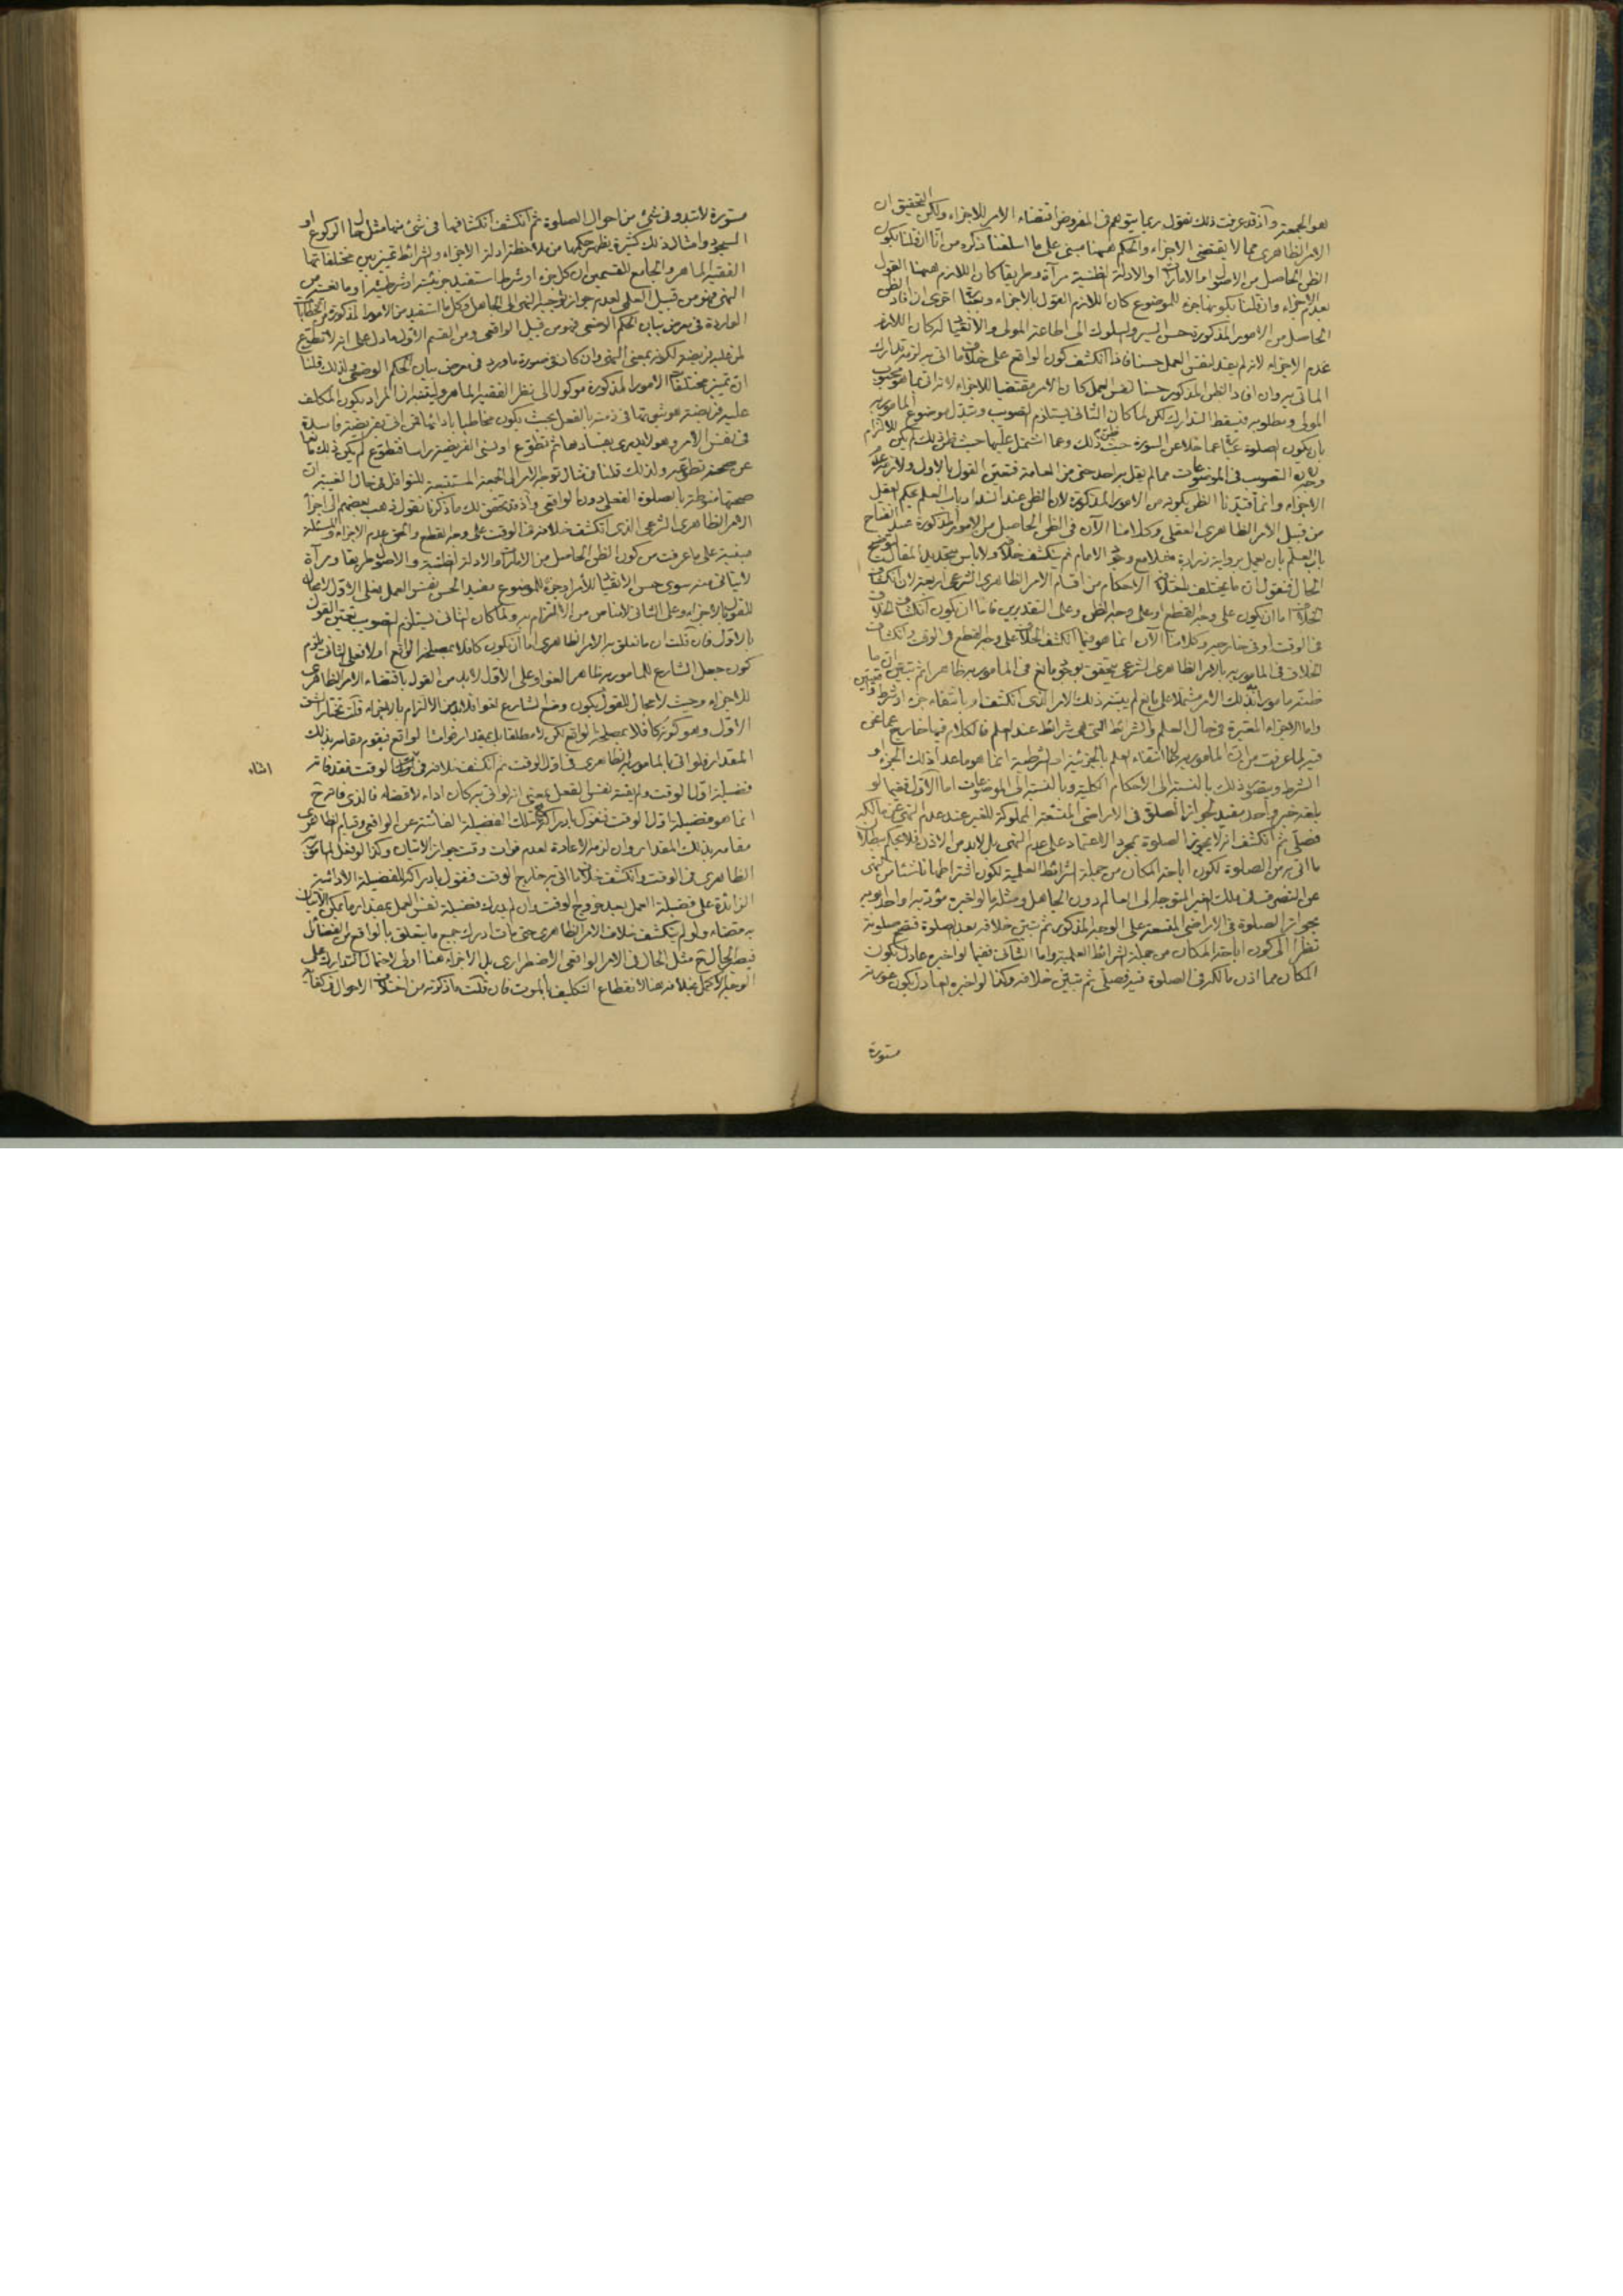 هو الجمعة وآذ قد عرفت ذلك نقول ربما يتوهم فى المفروض اقتضاء الامر للاجزاء ولكن التحقيق ان
الامر الظاهرى مما لا يقتضى الاجزاء والحكم ههنا مبنى على ما اسلفنا ذكره من انا ان قلنا بكون
الظن الحاصل من الاصول او الامارات او الادلة الظنية مرآة وطريقا كان اللازم ههنا القول
بعدم الاجزاء وان قلنا بكونها جزء للموضوع كان اللازم القول بالاجزاء وبعبارة اخرى ان افاد الظن
الحاصل من الامور المذكورة حسن السير والسلوك الى اطاعة المولى والانقياد له كان اللازم
عدم الاجزاء لانه لم يفد لنفس العمل حسنا فاذا انكشف كون الواقع على خلاف ما اتى به لزمه تدارك
المأتى به وان افاد الظن المذكور حسنا لنفس العمل كان الامر مقتضيا للاجزاء لانه اتى بما هو محبوب
المولى ومطلوبه فيسقط التدارك لكن لما كان الثانى يستلزم التصويب وتبدل موضوع المأمور به
بان يكون الصلوة عبارة عما خلا عن السورة حيث ظن ذلك وعما اشتمل عليها حيث ظن ذلك لم يكن للالتزام
التصويب فى الموضوعات مما لم يقل به احد حتى من العامة فتعين القول بالاول ولازمه عدم
الاجزاء وانما قيدنا الظن بكونه من الامور المذكورة لان الظن عند انسداد باب العلم بحكم العقل
من قبيل الامر الظاهرى العقلى وكلامنا الآن فى الظن الحاصل من الامور المذكورة عند انفتاح
باب العلم بان يعمل برواية زرارة مثلا مع وجود الامام ثم ينكشف خلافه ولا باس بتجديد المقال لتوضيح
الحال فنقول ان ما يختلف باختلافه الاحكام من اقسام الامر الظاهرى الشرعى اربعة لان انكشاف
الخلاف اما ان يكون على وجه القطع او على وجه الظن وعلى التقديرين فاما ان يكون انكشاف الخلاف
فى الوقت او فى خارجه وكلامنا الآن انما هو فيما انكشف الخلاف على وجه القطع فى الوقت وانكشاف
الخلاف فى المأمور به بالامر الظاهرى الشرعى يتحقق بوجود مانع فى المأمور به ظاهرا ثم تبين ان ما
ظنه مأمورا به بذلك الامر مشتملا على مانع لم يعتبره ذلك الامر الذى انكشف او بانتفاء جزء او شرط
واما الاجزاء المعتبرة فى حال العلم والشرائط التى هى شرائط عند العلم فالكلام فيها خارج عما نحن
فيه لما عرفت من ان المأمور به انتفاء العلم بالجزئية او الشرطية انما هو ما عدا ذلك الجزء او
الشرط ويتصور ذلك بالنسبة الى الاحكام الكلية وبالنسبة الى الموضوعات اما الاول ففيما لو
بلغه خبر واحد مفيد لجواز الصلوة فى الاراضى المتسعة المملوكة للغير عند عدم النهى عن مالكه
فصلى ثم انكشف انه لا يجوز الصلوة بمجرد الاعتماد على عدم النهى بل لابد من الاذن فلا يحكم ببطلان
ما اتى به من الصلوة لكون اباحة المكان من جملة الشرائط العلمية لكون اشتراطها ناشئا من النهى
عن التصرف فى ملك الغير المتوجه الى العالم دون الجاهل ومثله ما لو اخبره مؤدبه او واحد ابويه
بجواز الصلوة فى الاراضى المتسعة على الوجه المذكور ثم تبين خلافه بعد الصلوة فتصح صلوته
نظرا الى كون اباحة المكان من جملة الشرائط العلمية واما الثانى ففيما لو اخبره عادل بكون
المكان مما اذن مالكه فى الصلوة فيه فصلى ثم تبين خلافه وكذا لو اخبره العادل بكون عورته
مستورة
مستورة لا تبدو فى شئ من احوال الصلوة ثم انكشف انكشافها فى شئ منها مثل حال الركوع او
السجود وامثال ذلك كثيرة يظهر حكمها من ملاحظة ادلة الاجزاء والشرائط تميز بين مختلفاتها
الفقيه الماهر والجامع للقسمين ان كل جزء او شرط استفيد جزئيته او شرطيته
النهى فهو من قبيل العلمى لعدم جواز توجيه النهى الى الجاهل وكل ما استفيد من الامور المذكورة من الخطابات
الواردة فى معرض بيان الحكم الوضعى فهو من قبيل الواقعى ومن القسم الاول ما دل على انه لا تطوع
لمن عليه فريضة لكونه بمعنى النهى وان كان فى صورة ما ورد فى معرض بيان الحكم الوضعى ولذلك قلنا
ان تميز مختلفات الامور المذكورة موكول الى نظر الفقيه الماهر وليتنبه ان المراد بكون المكلف
عليه فريضة هو ثبوتها فى ذمته بالفعل بحيث يكون مخاطبا بادائها فمن اتى بفريضة فاسدة
فى نفس الامر وهو لا يدرى بفسادها ثم تطوع او نسى الفريضة راسا فتطوع لم يكن ذلك مانعا
عن صحة تطوعه ولذلك قلنا فى مثال توجه الامر الى الجمعة المستتبعة للنوافل فى حال الغيبة ان
صحتها منوطة بالصلوة الفعلى دون الواقعى وآذ قد تحقق لك ما ذكرنا نقول ذهب بعضهم الى اجزاء
الامر الظاهرى الشرعى الذى انكشف خلافه فى الوقت على وجه القطع والحق عدم الاجزاء والمسئلة
مبنية على ما عرفت من كون الظن الحاصل من الامارات والادلة الظنية والاصول طريقا ومرآة
لا يتاتى منه سوى حسن الانقياد للأمر او جزء للموضوع مفيد الحسن نفس العمل فعلى الاول لا مجال
للقول بالاجزاء وعلى الثانى لا مناص من الالتزام به ولما كان الثانى يستلزم التصويب تعين القول
بالاول فان قلت ان ما تعلق به الامر الظاهرى اما ان يكون كافلا بمصلحة الواقع او لا فعلى الثانى يلزم
كون جعل الشارع للمأمور به ظاهرا لغوا وعلى الاول لابد من القول باقتضاء الامر الظاهرى
للاجزاء وحيث لا مجال للقول بكون وضع الشارع لغوا فلابد من الالتزام بالاجزاء قلت نختار الشق
الاول وهو كونه كافلا بمصلحة الواقع لكن لا مطلقا بل بمقدار فوات الواقع فيقوم مقامه بذلك
المقدار فلو اتى بالمأمور به الظاهرى فى اول الوقت ثم انكشف خلافه فى اثناء الوقت فقد فاته
اثناء
فضيلة اول الوقت ولم يفته نفس الفعل بمعنى انه لو اتى به كان اداء لا قضاء فالذى فاته ح
انما هو فضيلة اول الوقت فنقول بادراكه تلك الفضيلة الفائتة عن الواقعى وقيام الظاهرى
مقامه بذلك المقدار وان لزمه الاعادة لعدم فوات وقت جواز الاتيان وكذا لو فعل المأمور به
الظاهرى فى الوقت وانكشف خلاف ما اتى به خارج الوقت فنقول بادراكه للفضيلة الادائية
الزائدة على فضيلة العمل بعد خروج الوقت وان لم يدرك فضيلة نفس العمل بمقدار ما يمكن الاتيان
به قضاء ولو لم ينكشف خلاف الامر الظاهرى حتى مات ادرك جميع ما يتعلق بالواقع من الفضائل
فيصير الحال ح مثل الحال فى الامر الواقعى الاضطرارى بل الاجزاء هنا اولى لاحتمال التدارك على
الوجه الاكمل بخلافه هنا لانقطاع التكليف بالموت فان قلت ما ذكرته من اختلاف الاحوال فى كفاية